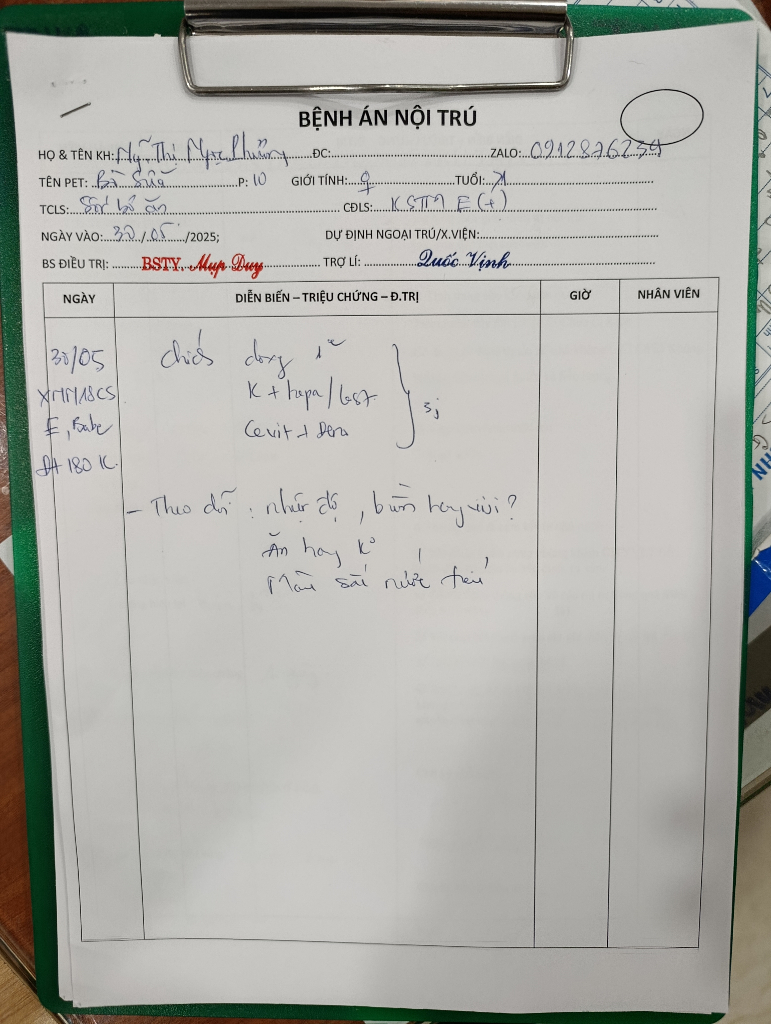 BỆNH ÁN NỘI TRÚ
HỌ & TÊN KH: Ng~ Thị Ngọc Phượng ĐC: ZALO: 0912876234
TÊN PET: Bò Sữa P: 10 GIỚI TÍNH: ♀ TUỔI:
TCLS: Sốt bỏ ăn CĐLS: KSTM E(+)
NGÀY VÀO: 30/05/2025; DỰ ĐỊNH NGOẠI TRÚ/X.VIỆN:
BS ĐIỀU TRỊ: BSTY. Mụp Duy TRỢ LÍ: Quốc Vịnh
NGÀY DIỄN BIẾN – TRIỆU CHỨNG – Đ.TRỊ GIỜ NHÂN VIÊN
30/05 Chích doxy
XNM 18CS K + hepa/
E, Babe Cevit + Dexa
180K
- Theo dõi: nhiệt độ, buồn hay vui?
Ăn hay K°
Màu sắc nước tiểu